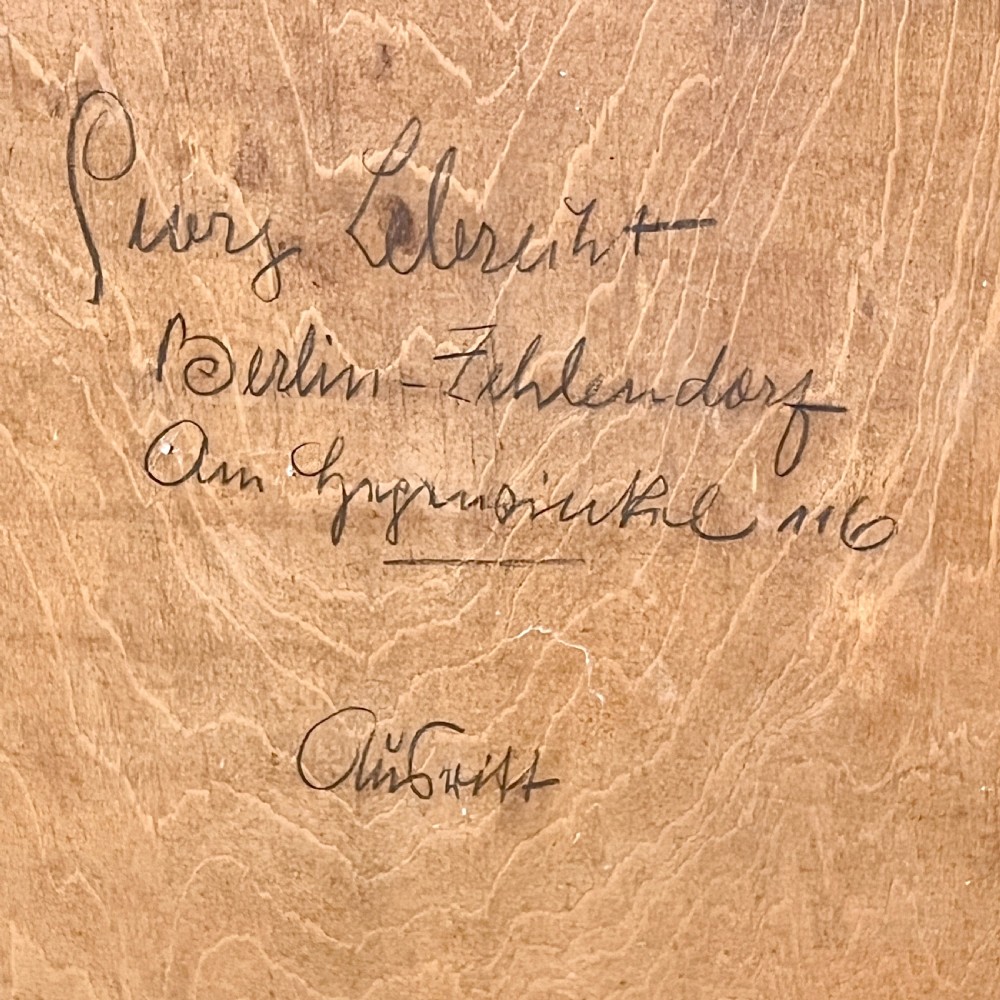 Georg Lebrecht
Berlin-Zehlendorf
Am Hegewinkel 116
Ausritt